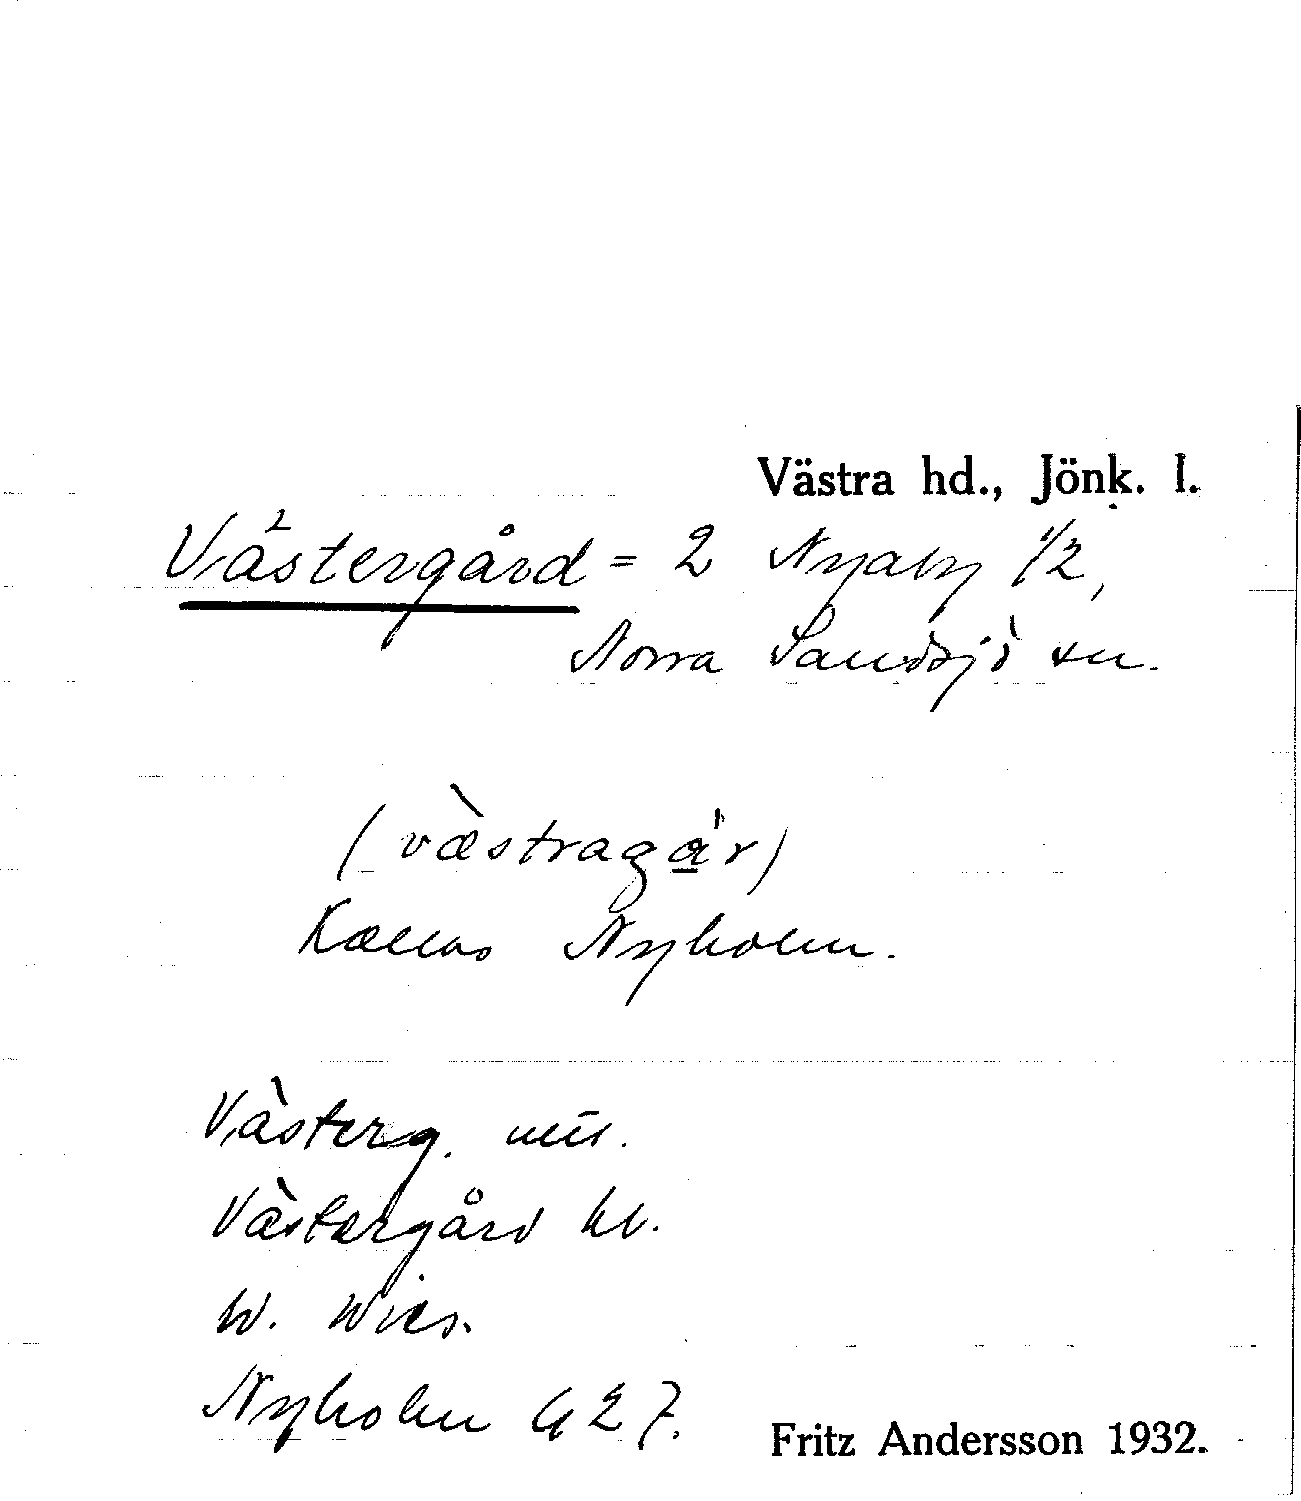 Västra hd., Jönk. l.
Västergård = 2 Nyaby 1/2,
Norra Sandsjö sn.
(væ̀stragár)
Kallas Nyholm.
Västerg. mü.
Västergård bl.
W.
Nyholm G 27.
Fritz Andersson 1932.